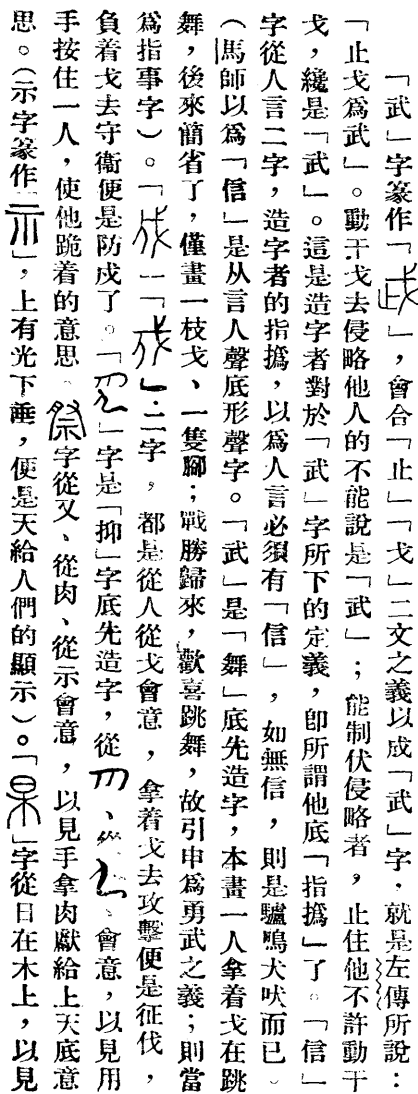 「武」字篆作「」，會合「止」「戈」二文之義以成「武」字，就是左傳所說：
「止戈爲武」。動干戈去侵略他人的不能說是「武」；能制伏侵略者，止住他不許動干
戈，纔是「武」。這是造字者對於「武」字所下的定義，卽所謂他底「指撝」了。「信」
字從人言二字，造字者的指撝，以爲人言必須有「信」，如無信，則是驢鳴犬吠而已。
（馬師以爲「信」是从言人聲底形聲字。「武」是「舞」底先造字，本畫一人拿着戈在跳
舞，後來簡省了，僅畫一枝戈、一隻腳；戰勝歸來，歡喜跳舞，故引申爲勇武之義；則當
爲指事字）。「」「」二字，都是從人從戈會意，拿着戈去攻擊便是征伐，
負着戈去守衛便是防戍了。「」字是「抑」字底先造字，從、從、會意，以見用
手按住一人，使他跪着的意思、字從又、從肉、從示會意，以見手拿肉獻給上天底意
思。（示字篆作「」，上有光下垂，便是天給人們的顯示）。「」字從日在木上，以見